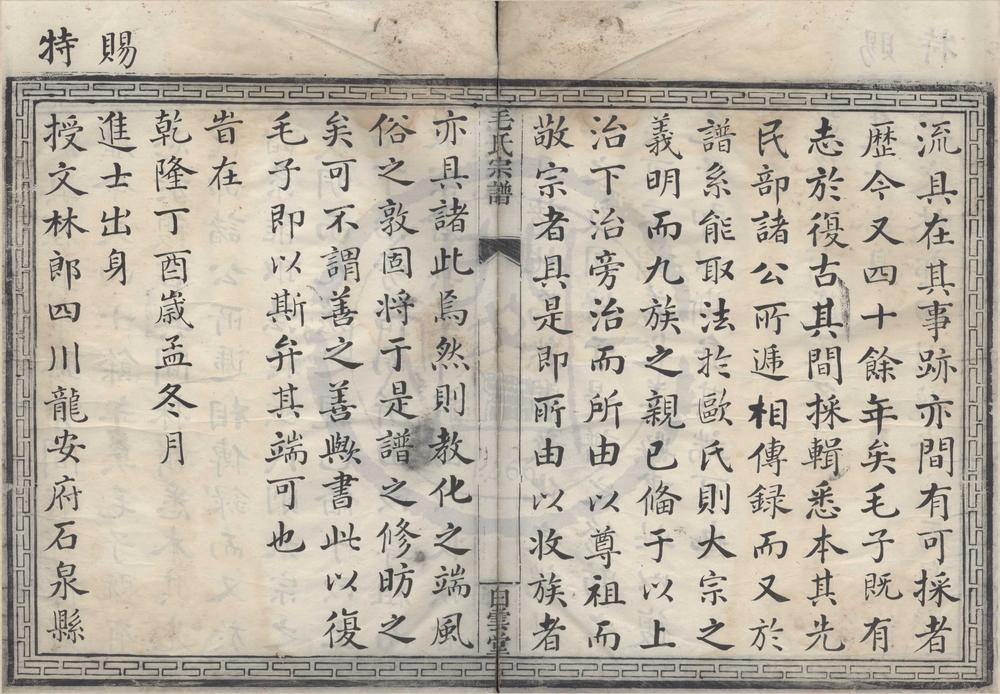 流具在其事跡亦間有可採者
歷今又四十餘年矣毛子既有
志於復古其間採輯悉本其先
民部諸公所遞相傳録而又於
譜系能取法於歐氏則大宗之
義明而九族之親已俻于以上
治下治旁治而所由以尊祖而
敬宗者具是即所由以收族者
毛氏宗譜
白雲堂
亦具諸此焉然則教化之端風
俗之敦固将于是譜之修昉之
矣可不謂善之善歟書此以復
毛子即以斯弁其端可也
旹在
乾隆丁酉嵗孟冬月
賜
進士出身
特
授文林郎四川龍安府石泉縣